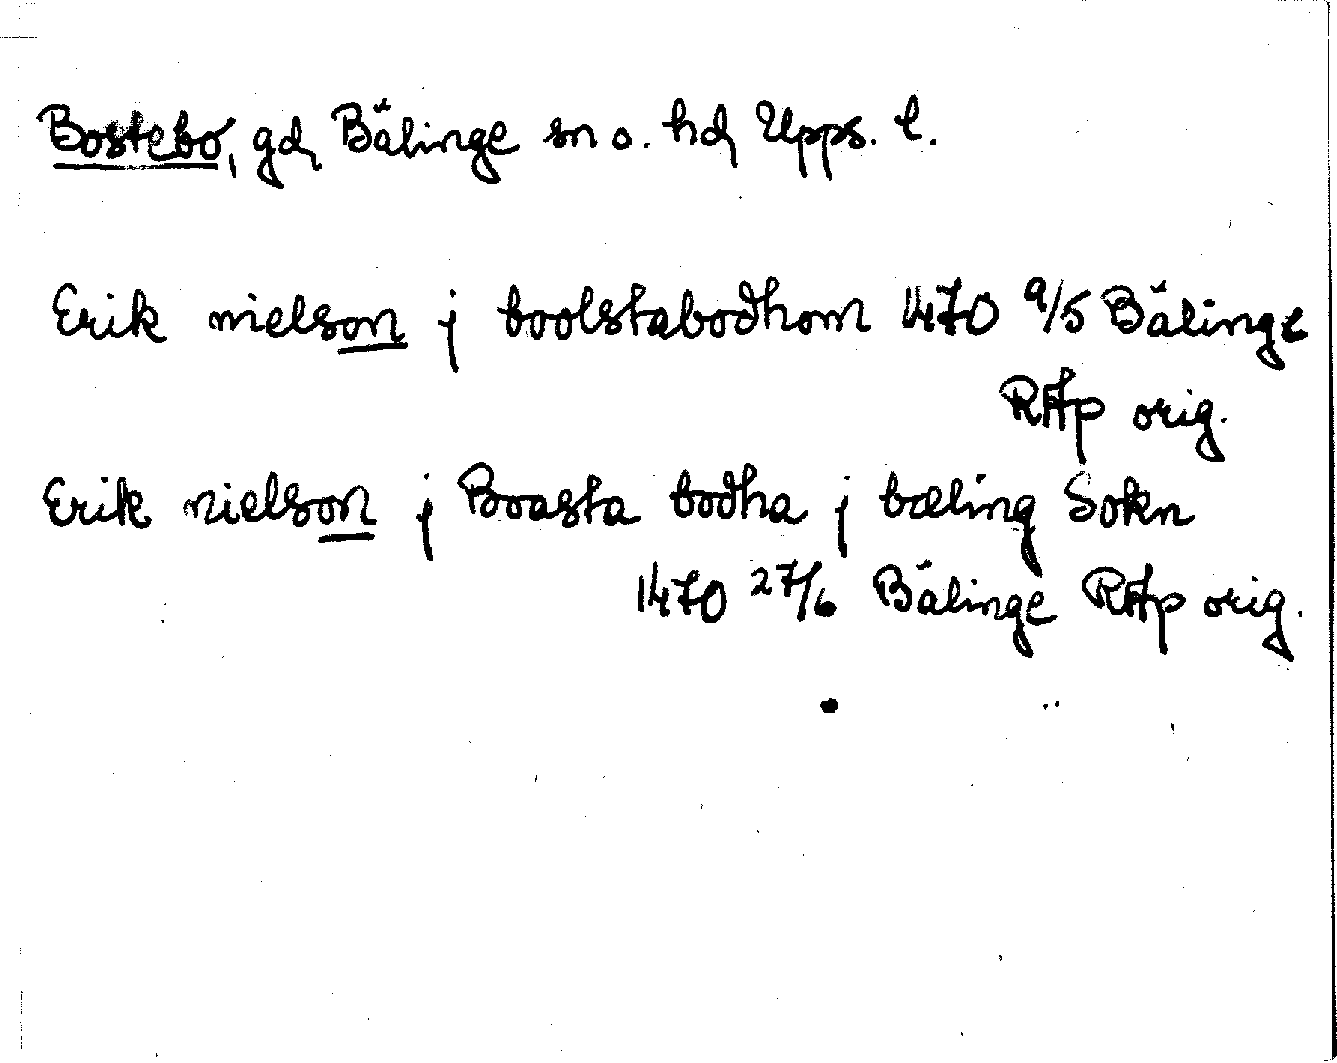 Bostebo, gd, Bälinge sn o. hd, Upps. l.
Erik nielson j boolstabodhom 1470 9/5 Bälinge
RAp orig.
Erik nielson j Boasta bodha j bæling Sokn
1470 27/6 Bälinge RAp orig.